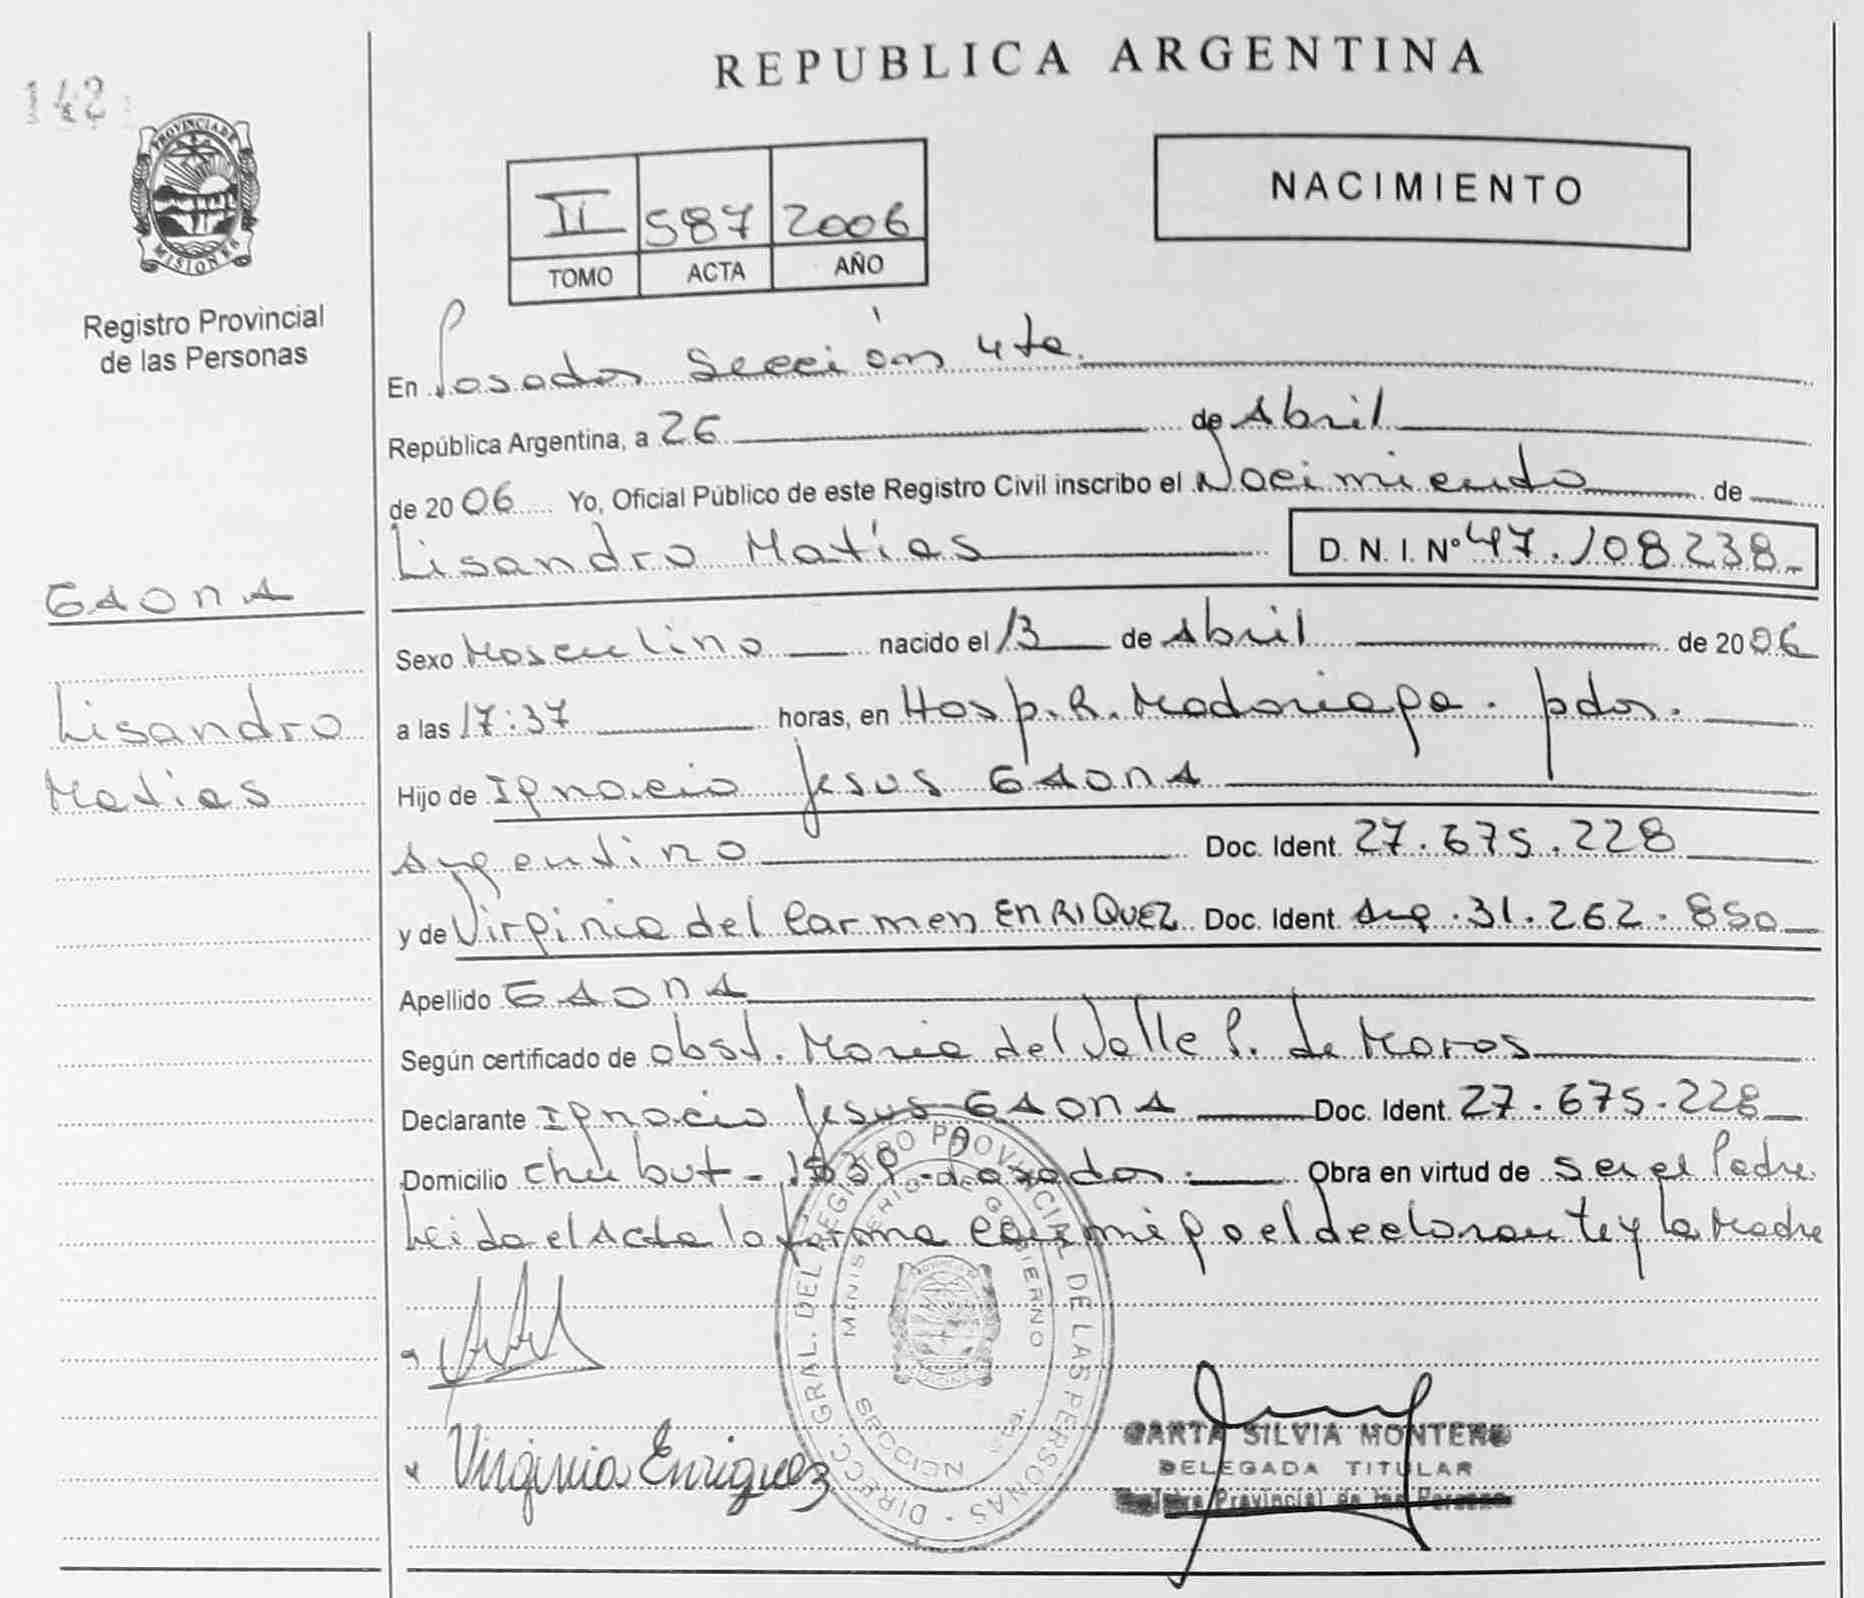 REPUBLICA ARGENTINA
142
PROVINCIA DE
MISIONES
Registro Provincial
de las Personas
NACIMIENTO
II 587 2006
TOMO ACTA AÑO
En Posadas Sección 4ta.
República Argentina, a 26 de Abril
de 2006 Yo, Oficial Público de este Registro Civil inscribo el Nacimiento de
Lisandro Matías D. N. I. Nº 47.108238
GAONA
Lisandro
Matias
Sexo Masculino nacido el 13 de Abril de 2006
a las 17:37 horas, en Hosp. R. Madariaga. pdas.
Hijo de Ignacio Jesus GAONA
Argentino Doc. Ident. 27.675.228
y de Virginia del Carmen ENRIQUEZ Doc. Ident. Arg. 31.262.850
Apellido GAONA
Según certificado de obst. Maria del Valle P. de Maros
Declarante Ignacio Jesus GAONA Doc. Ident. 27.675.228
Domicilio Chubut - Posadas. Obra en virtud de ser el Padre
Leida el Acta la forma conmigo el declarante y la Madre
DIRECC. GRAL. DEL REGISTRO PROVINCIAL DE LAS PERSONAS
MINISTERIO DE GOBIERNO
Virginia Enriquez
SILVIA MONTERO
DELEGADA TITULAR
Registro Provincial de las Personas